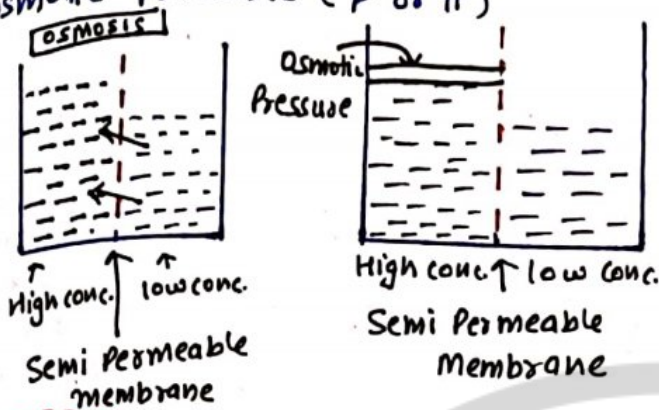 (P or π)
OSMOSIS
High conc. low conc.
Semi Permeable
membrane
Osmotic
Pressure
High conc. low conc.
Semi Permeable
Membrane